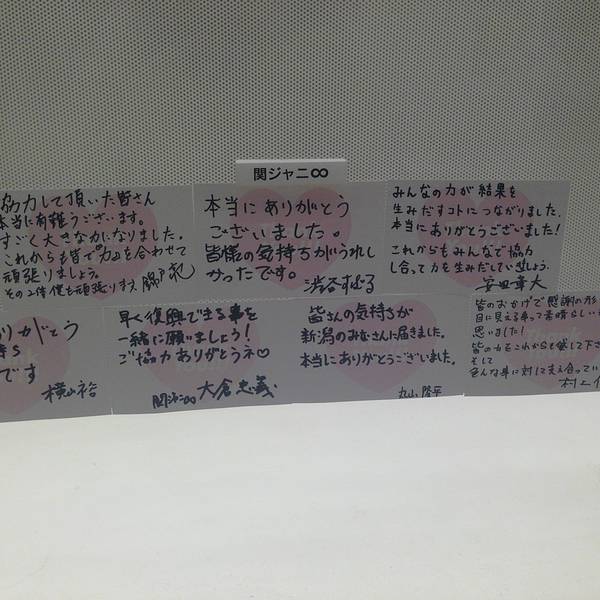 関ジャニ∞
協力して頂いた皆さん
本当に有難うございます。
すごく大きな力になりました。
これからも皆で力を合わせて
頑張りましょう。
その為僕も頑張ります。錦戸亮
本当にありがとう
ございました。
皆様の気持ちがうれし
かったです。
渋谷すばる
みんなの力が結果を
生みだすコトにつながりました。
本当にありがとうございました!
これからもみんなで協力
し合って力を生みだしていきましょう。
安田章大
ありがとう
です
横山裕
早く復興できる事を
一緒に願いましょう!
ご協力ありがとうネ♡
関ジャニ∞大倉忠義
皆さんの気持ちが
新潟のみなさんに届きました。
本当にありがとうございました。
丸山隆平
皆のおかげで感謝の形
目に見える事って素晴らしい
思いました!
皆の力をこれからも貸して下さ
そして
色んな事に対して支え合ってい
村上信